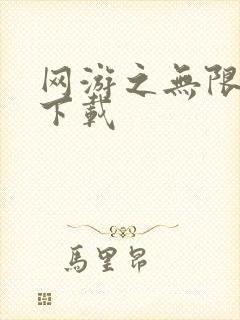 网游之無限
下載
馬里昂